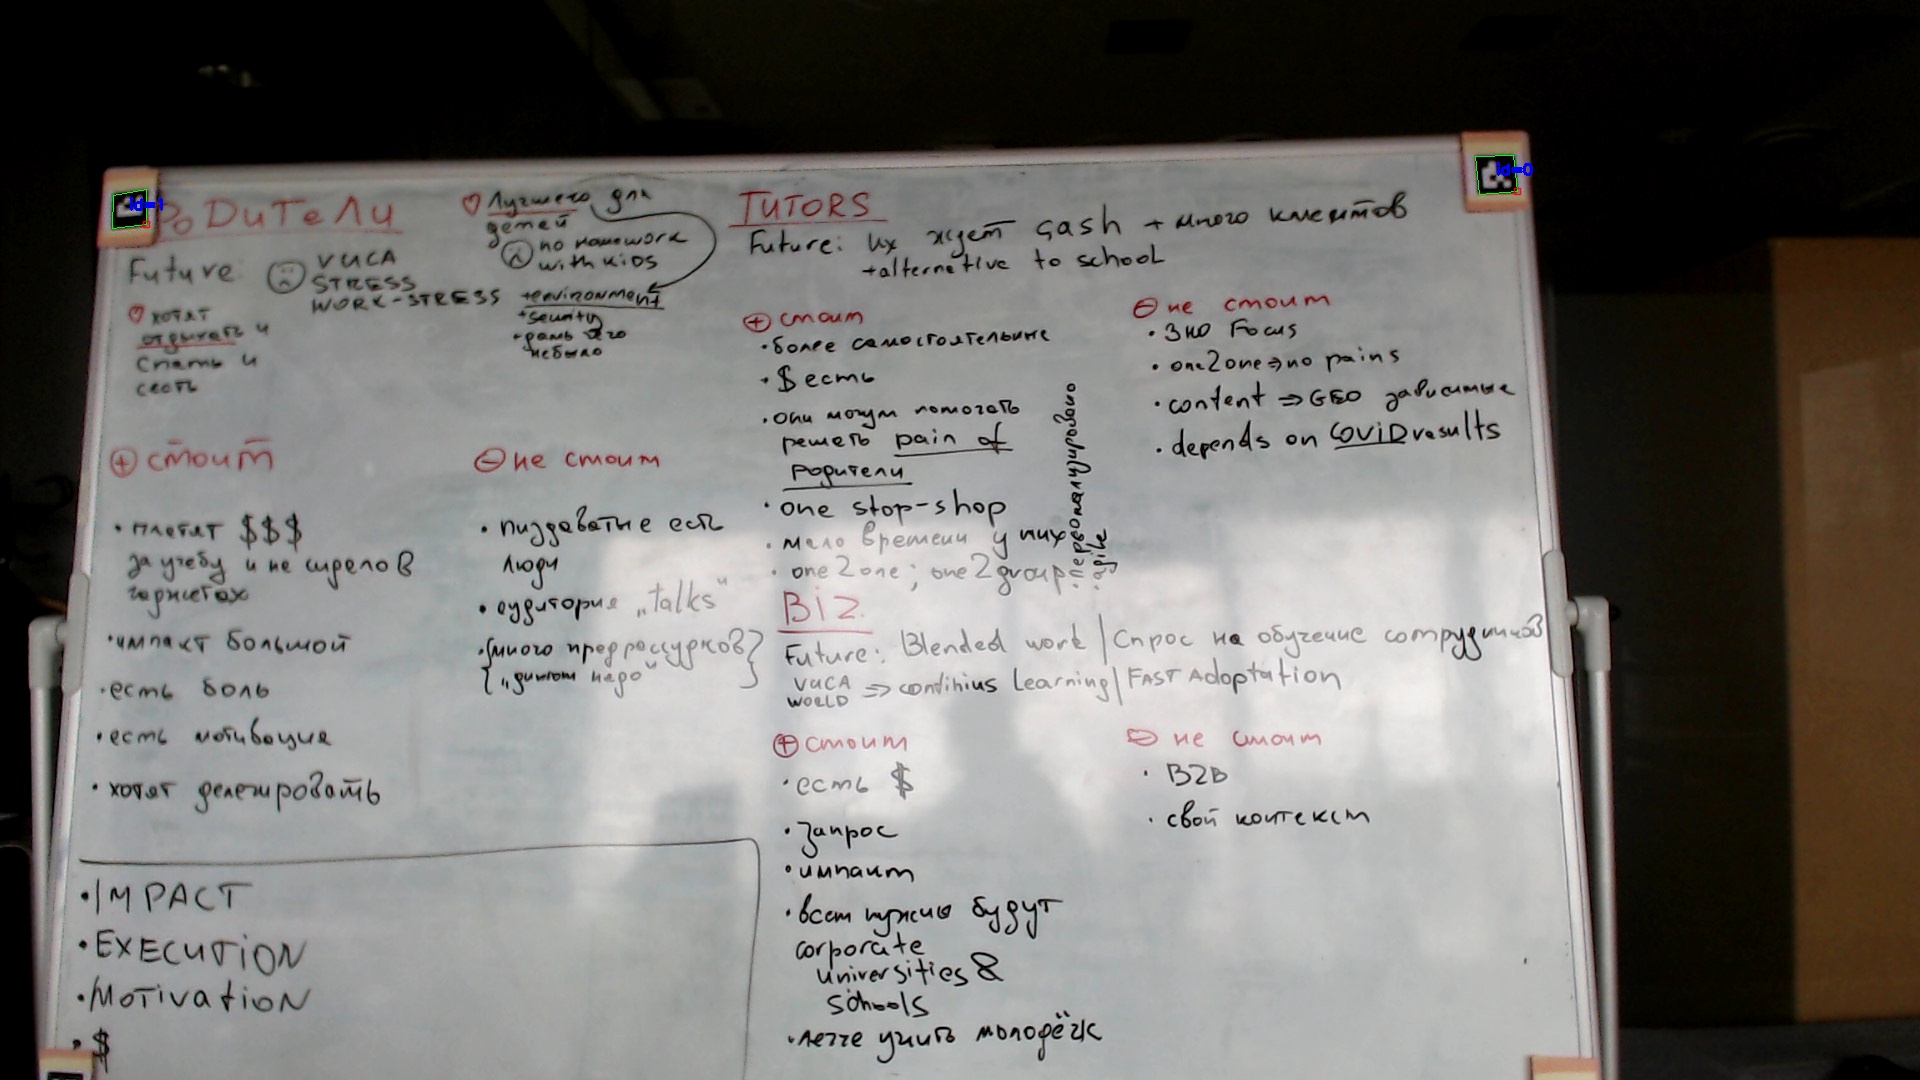 РОДИТЕЛИ
Future: VUCA
STRESS
WORK-STRESS
хотят
отдыхать и
спать и
сесть
Лучшего для
детей
no homework
with kids
+environment
+security
небыло
+ стоит
• платят $$$
за учебу и не сидело в
гаджетах
• импакт большой
• есть боль
• есть мотивация
• хотят делегировать
- не стоит
• пиздаватые есть
люди
• аудитория „talks"
• {много предрассудков}
{ „ надо" }
• IMPACT
• EXECUTION
• MOTIVATION
• $
TUTORS
Future: их ждет cash + много клиентов
+alternative to school
+ стоит
• более самостоятельные
• $ есть
• они могут помогать
решать pain of
родители
• one stop-shop
• мало времени у них
• one2one; one2group
• персонализировано
• agile
- не стоит
• ЗНО Focus
• one2one ⇒ no pains
• content ⇒ GEO зависимые
• depends on COVID results
BiZ.
Future: Blended work | Спрос на обучение сотрудников
VUCA
WORLD ⇒ continius Learning | FAST Adoptation
+ стоит
• есть $
• запрос
• импакт
• всем нужно будут
corporate
universities &
schools
• легче учить молодёжь
- не стоит
• B2B
• свой контекст
id=1
id=0